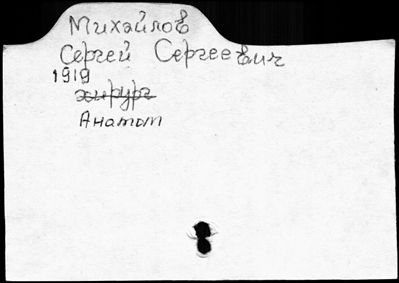 Михайлов
Сергей Сергеевич
1919
хирург
Анатом